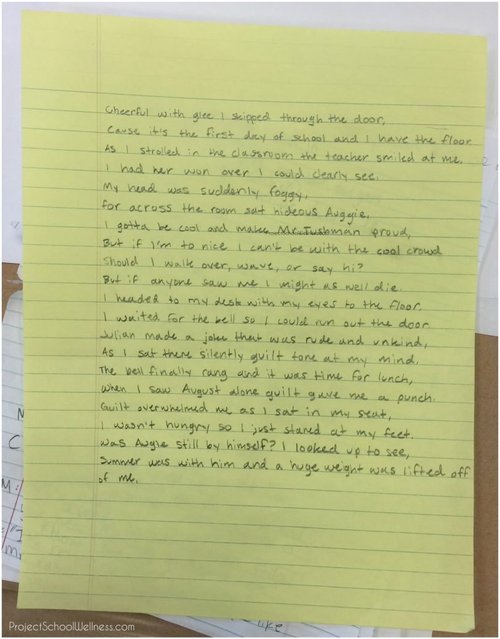 Cheerful with glee I skipped through the door,
Cause it's the first day of school and I have the floor.
As I strolled in the classroom the teacher smiled at me,
I had her won over I could clearly see.
My head was suddenly foggy,
for across the room sat hideous Auggie,
I gotta be cool and make Mr. Tushman proud,
But if I'm to nice I can't be with the cool crowd
Should I walk over, wave, or say hi?
But if anyone saw me I might as well die.
I headed to my desk with my eyes to the floor.
I waited for the bell so I could run out the door.
Julian made a joke that was rude and unkind,
As I sat there silently guilt tore at my mind.
The bell finally rang and it was time for lunch,
When I saw August alone guilt gave me a punch.
Guilt overwhelmed me as I sat in my seat,
I wasn't hungry so I just stared at my feet.
Was Augie still by himself? I looked up to see,
Summer was with him and a huge weight was lifted off
of me.
ProjectSchoolWellness.com